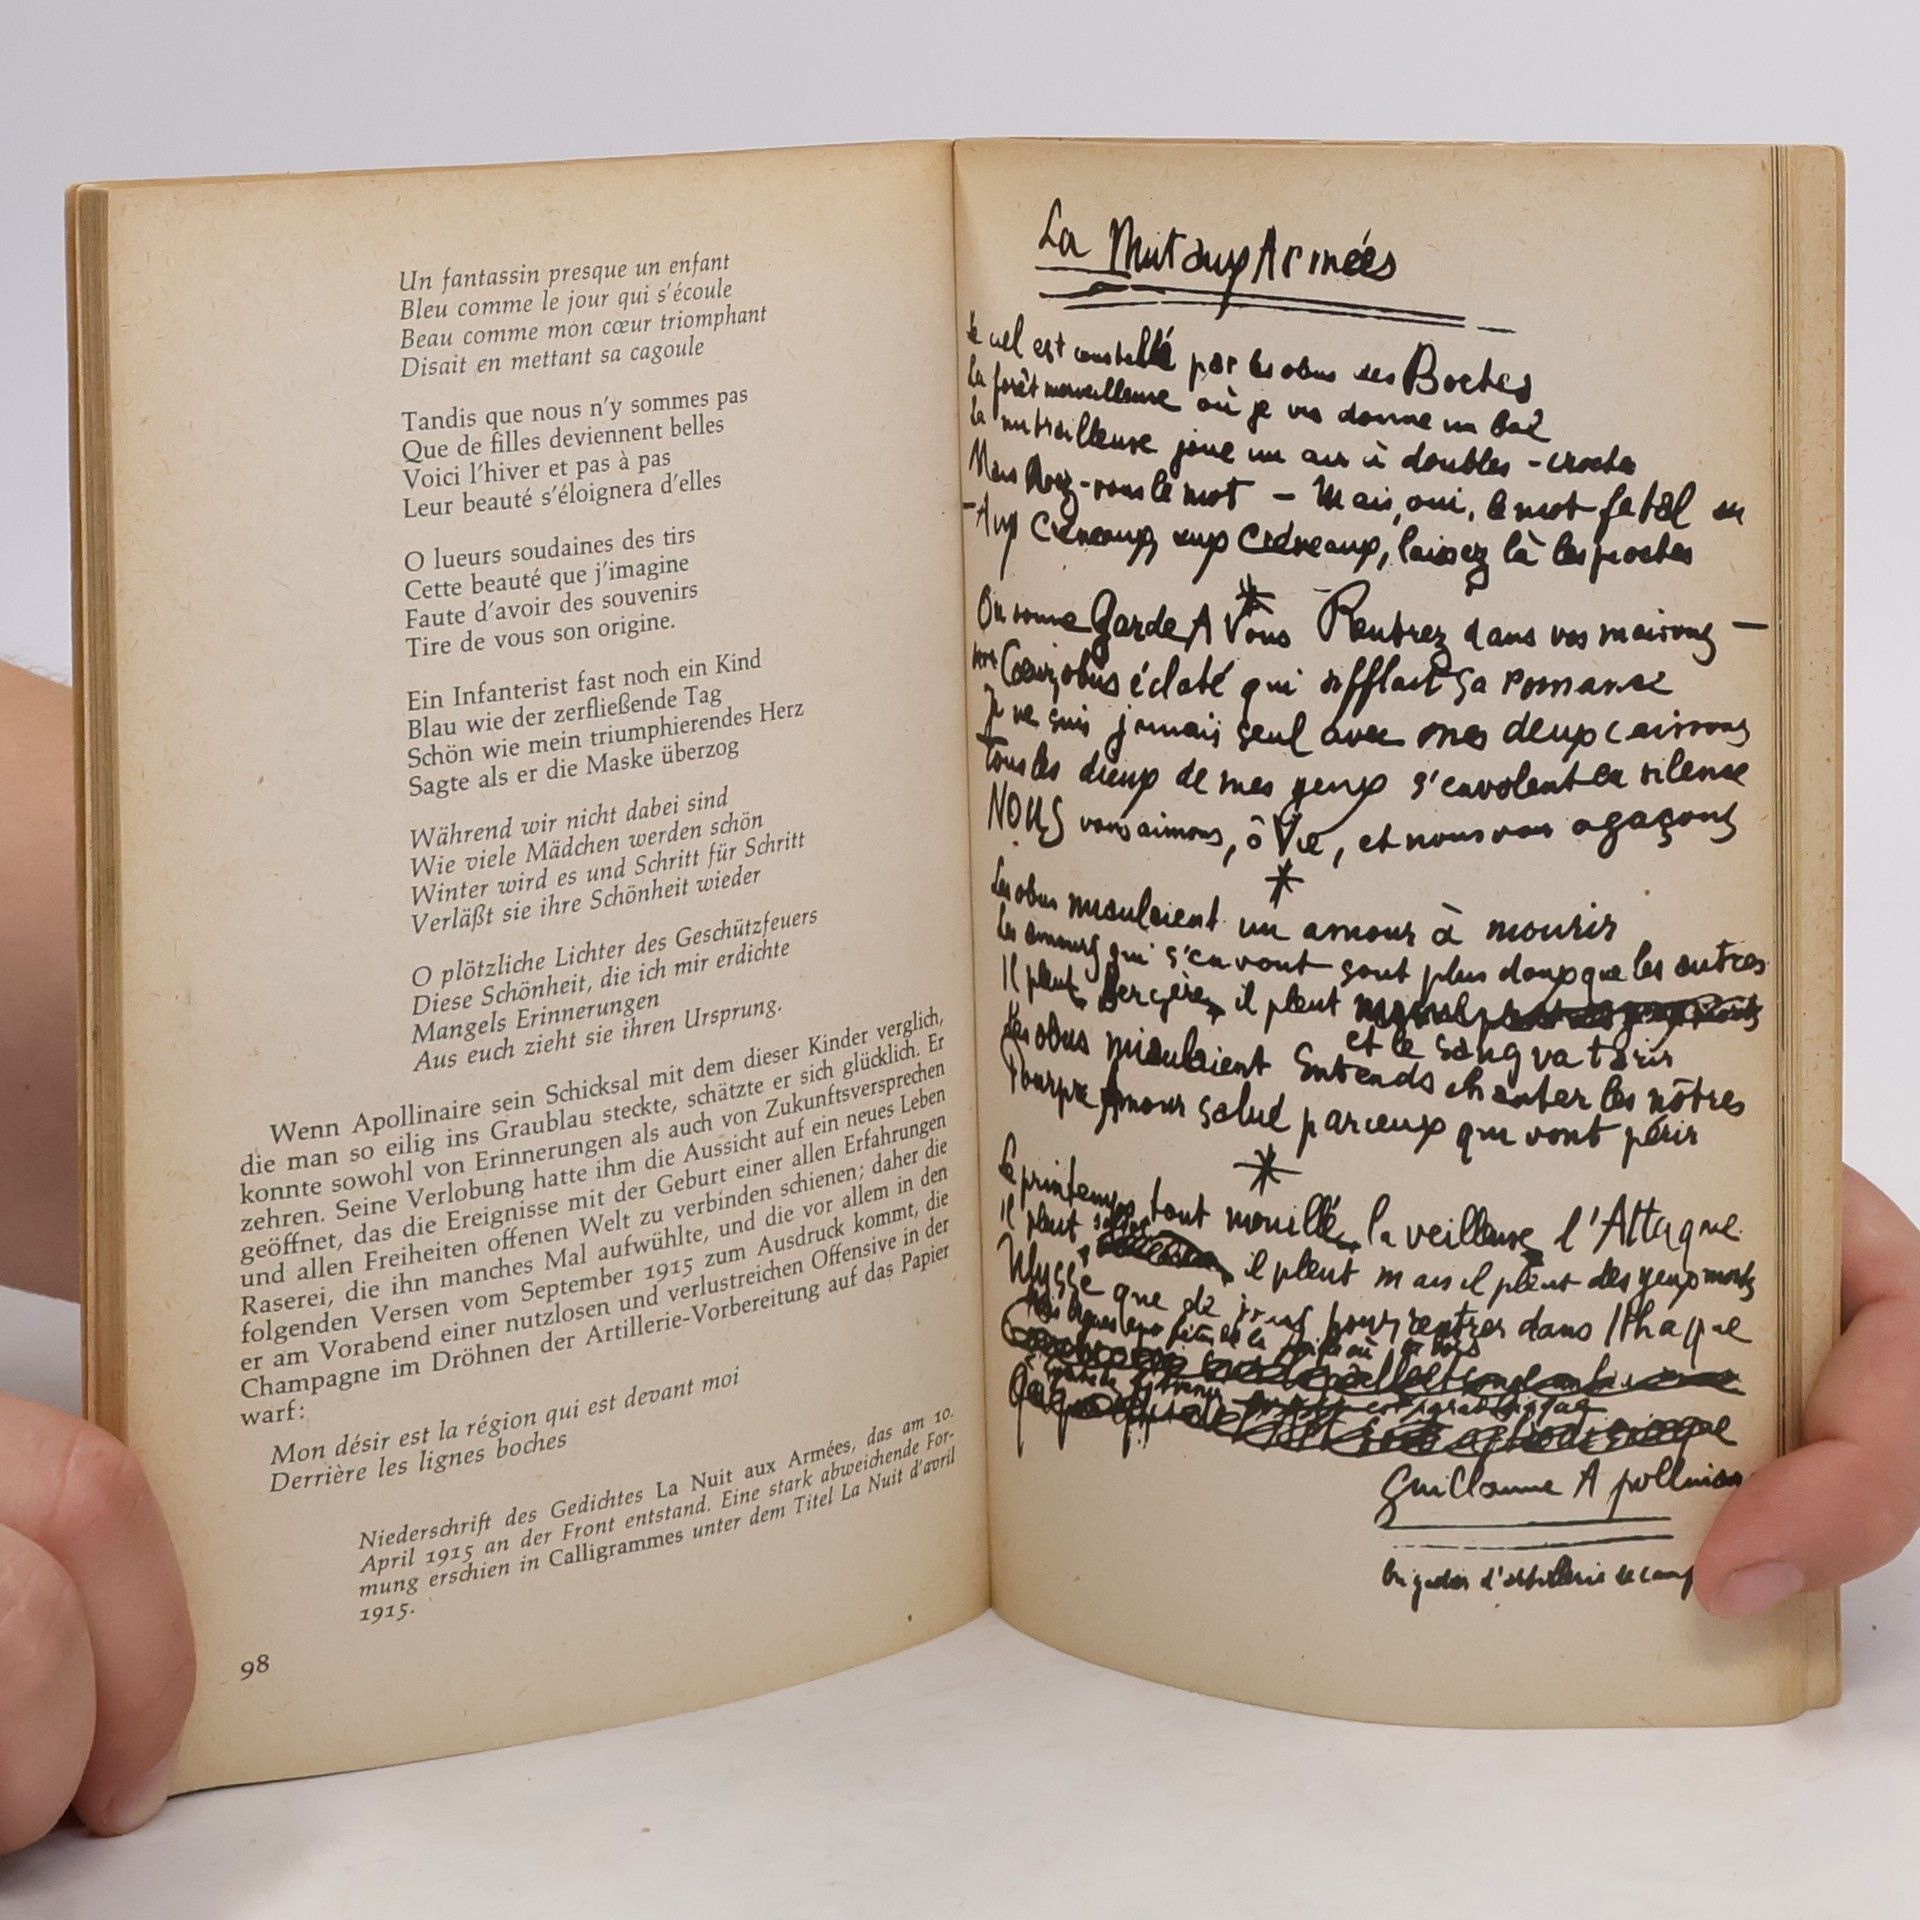 Un fantassin presque un enfant
Bleu comme le jour qui s'écoule
Beau comme mon cœur triomphant
Disait en mettant sa cagoule
Tandis que nous n'y sommes pas
Que de filles deviennent belles
Voici l'hiver et pas à pas
Leur beauté s'éloignera d'elles
O lueurs soudaines des tirs
Cette beauté que j'imagine
Faute d'avoir des souvenirs
Tire de vous son origine.
Ein Infanterist fast noch ein Kind
Blau wie der zerfließende Tag
Schön wie mein triumphierendes Herz
Sagte als er die Maske überzog
Während wir nicht dabei sind
Wie viele Mädchen werden schön
Winter wird es und Schritt für Schritt
Verläßt sie ihre Schönheit wieder
O plötzliche Lichter des Geschützfeuers
Diese Schönheit, die ich mir erdichte
Mangels Erinnerungen
Aus euch zieht sie ihren Ursprung.
Wenn Apollinaire sein Schicksal mit dem dieser Kinder verglich,
die man so eilig ins Graublau steckte, schätzte er sich glücklich. Er
konnte sowohl von Erinnerungen als auch von Zukunftsversprechen
zehren. Seine Verlobung hatte ihm die Aussicht auf ein neues Leben
geöffnet, das die Ereignisse mit der Geburt einer allen Erfahrungen
und allen Freiheiten offenen Welt zu verbinden schienen; daher die
Raserei, die ihn manches Mal aufwühlte, und die vor allem in den
folgenden Versen vom September 1915 zum Ausdruck kommt, die
er am Vorabend einer nutzlosen und verlustreichen Offensive in der
Champagne im Dröhnen der Artillerie-Vorbereitung auf das Papier
warf:
Mon désir est la région qui est devant moi
Derrière les lignes boches
Niederschrift des Gedichtes La Nuit aux Armées, das am 10.
April 1915 an der Front entstand. Eine stark abweichende For-
mung erschien in Calligrammes unter dem Titel La Nuit d'avril
1915.
98
La Nuit aux Armées
Le ciel est constellé par les obus des Boches
La forêt merveilleuse où je vis donne un bal
La mitrailleuse joue un air à doubles-croches
Mais Avez-vous le mot - Mais, oui, le mot fatal
- Aux Créneaux, aux Créneaux, laissez là les pioches
*
On sonne Garde A Vous Rentrez dans vos maisons -
Cœur, obus éclaté qui sifflait sa romance
Je ne suis jamais seul avec mes deux caissons
Tous les dieux de mes yeux s'envolent en silence
NOUS vous aimons, ô Vie, et nous vous agaçons
*
Les obus miaulaient un amour à mourir
Les amours qui s'en vont sont plus doux que les autres
Il pleut, Bergère, il pleut
et le sang va tarir
Les obus miaulaient Entends chanter les nôtres
Pourpre Amour salué par ceux qui vont périr
*
Le printemps tout mouillé, la veilleuse, l'Attaque
Il pleut, il pleut mais il pleut des yeux morts
Ulysse que de jours pour rentrer dans Ithaque
Guillaume Apollinaire
brigadier d'artillerie de camp